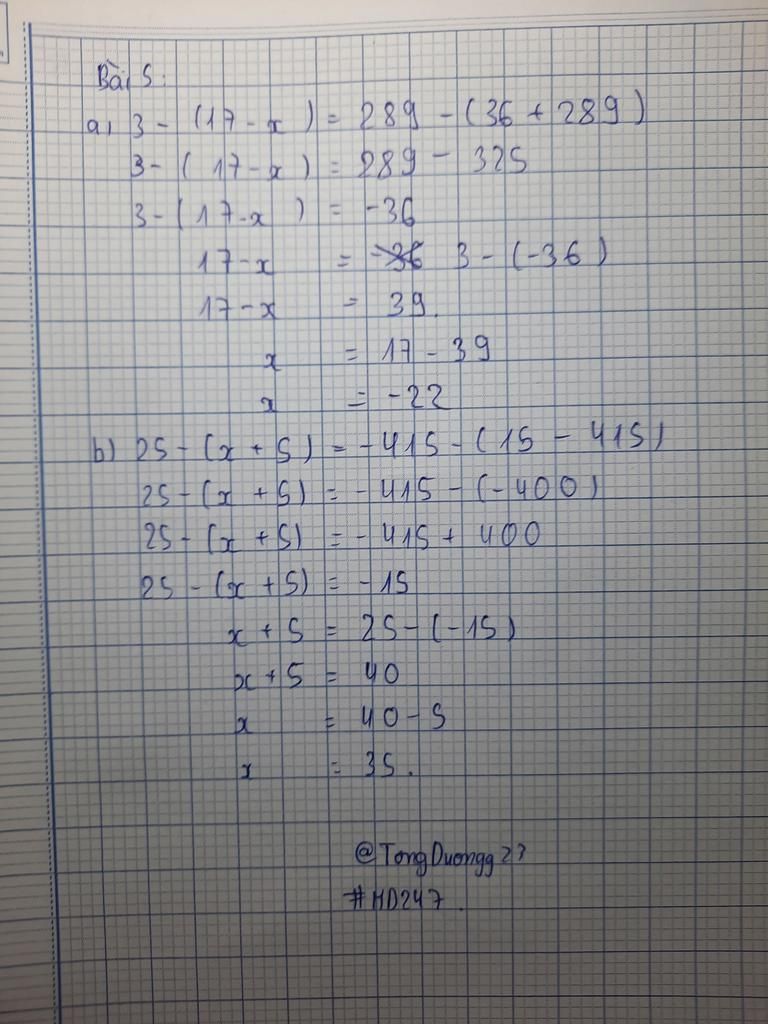 Bài 5:
a, 3 - (17 - x) = 289 - (36 + 289)
3 - (17 - x) = 289 - 325
3 - (17 - x) = -36
17 - x = 3 - (-36)
17 - x = 39.
x = 17 - 39
x = -22
b) 25 - (x + 5) = -415 - (15 - 415)
25 - (x + 5) = -415 - (-400)
25 - (x + 5) = -415 + 400
25 - (x + 5) = -15
x + 5 = 25 - (-15)
x + 5 = 40
x = 40 - 5
x = 35.
@TongDuongg23
#HD247.